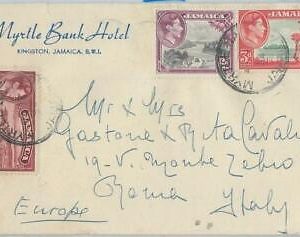 Myrtle Bank Hotel
KINGSTON, JAMAICA, B.W.I.
JAMAICA
JAMAICA
3D
JAMAICA
Mr & Mrs
Gastone & Rita Cavali
19. V. Monte Zebio
Roma
Italy
Europe